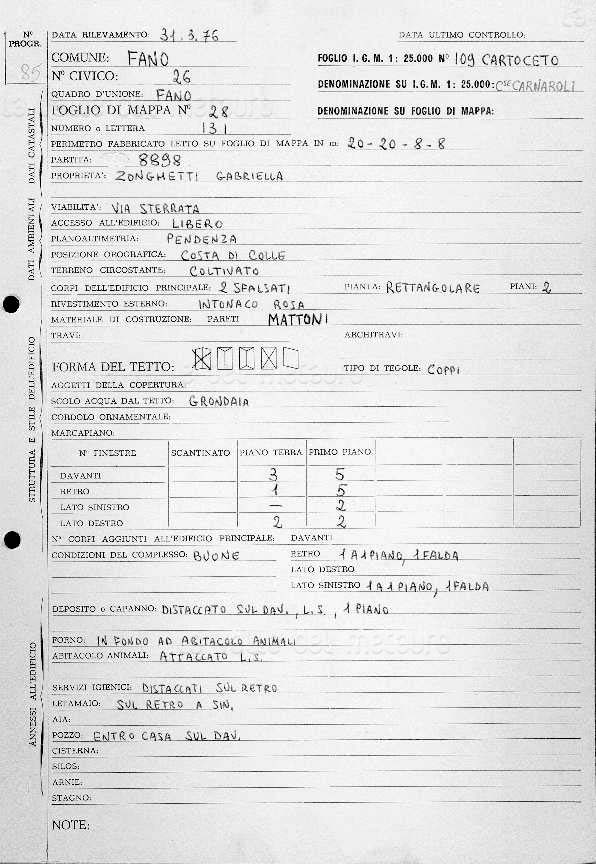 Nº PROGR.
85
DATA RILEVAMENTO: 31.3.76
DATA ULTIMO CONTROLLO:
COMUNE: FANO
FOGLIO I. G. M. 1 : 25.000 Nº 109 CARTOCETO
Nº CIVICO: 26
DENOMINAZIONE SU I. G. M. 1 : 25.000: Cse CARNAROLI
QUADRO D'UNIONE: FANO
FOGLIO DI MAPPA Nº 28
DENOMINAZIONE SU FOGLIO DI MAPPA:
NUMERO o LETTERA 131
PERIMETRO FABBRICATO LETTO SU FOGLIO DI MAPPA IN m: 20-20-8-8
PARTITA: 8898
PROPRIETA': ZONGHETTI GABRIELLA
DATI CATASTALI
VIABILITA': VIA STERRATA
ACCESSO ALL'EDIFICIO: LIBERO
PLANOALTIMETRIA: PENDENZA
POSIZIONE OROGRAFICA: COSTA DI COLLE
TERRENO CIRCOSTANTE: COLTIVATO
DATI AMBIENTALI
CORPI DELL'EDIFICIO PRINCIPALE: 2 SFALSATI PIANTA: RETTANGOLARE PIANI: 2
RIVESTIMENTO ESTERNO: INTONACO ROSA
MATERIALE DI COSTRUZIONE: PARETI MATTONI
TRAVI: ARCHITRAVI:
FORMA DEL TETTO: TIPO DI TEGOLE: COPPI
AGGETTI DELLA COPERTURA:
SCOLO ACQUA DAL TETTO: GRONDAIA
CORDOLO ORNAMENTALE:
MARCAPIANO:
STRUTTURA E STILE DELL'EDIFICIO
Nº FINESTRE SCANTINATO PIANO TERRA PRIMO PIANO
DAVANTI 3 5
RETRO 1 5
LATO SINISTRO — 2
LATO DESTRO 2 2
Nº CORPI AGGIUNTI ALL'EDIFICIO PRINCIPALE: DAVANTI
CONDIZIONI DEL COMPLESSO: BUONE RETRO 1 A 1 PIANO, 1 FALDA
LATO DESTRO
LATO SINISTRO 1 A 1 PIANO, 1 FALDA
DEPOSITO o CAPANNO: DISTACCATO SUL DAV., L.S., 1 PIANO
FORNO: IN FONDO AD ABITACOLO ANIMALI
ABITACOLO ANIMALI: ATTACCATO L.S.
SERVIZI IGIENICI: DISTACCATI SUL RETRO
LETAMAIO: SUL RETRO A SIN.
AIA:
POZZO: ENTRO CASA SUL DAV.
CISTERNA:
SILOS:
ARNIE:
STAGNO:
ANNESSI ALL'EDIFICIO
NOTE: